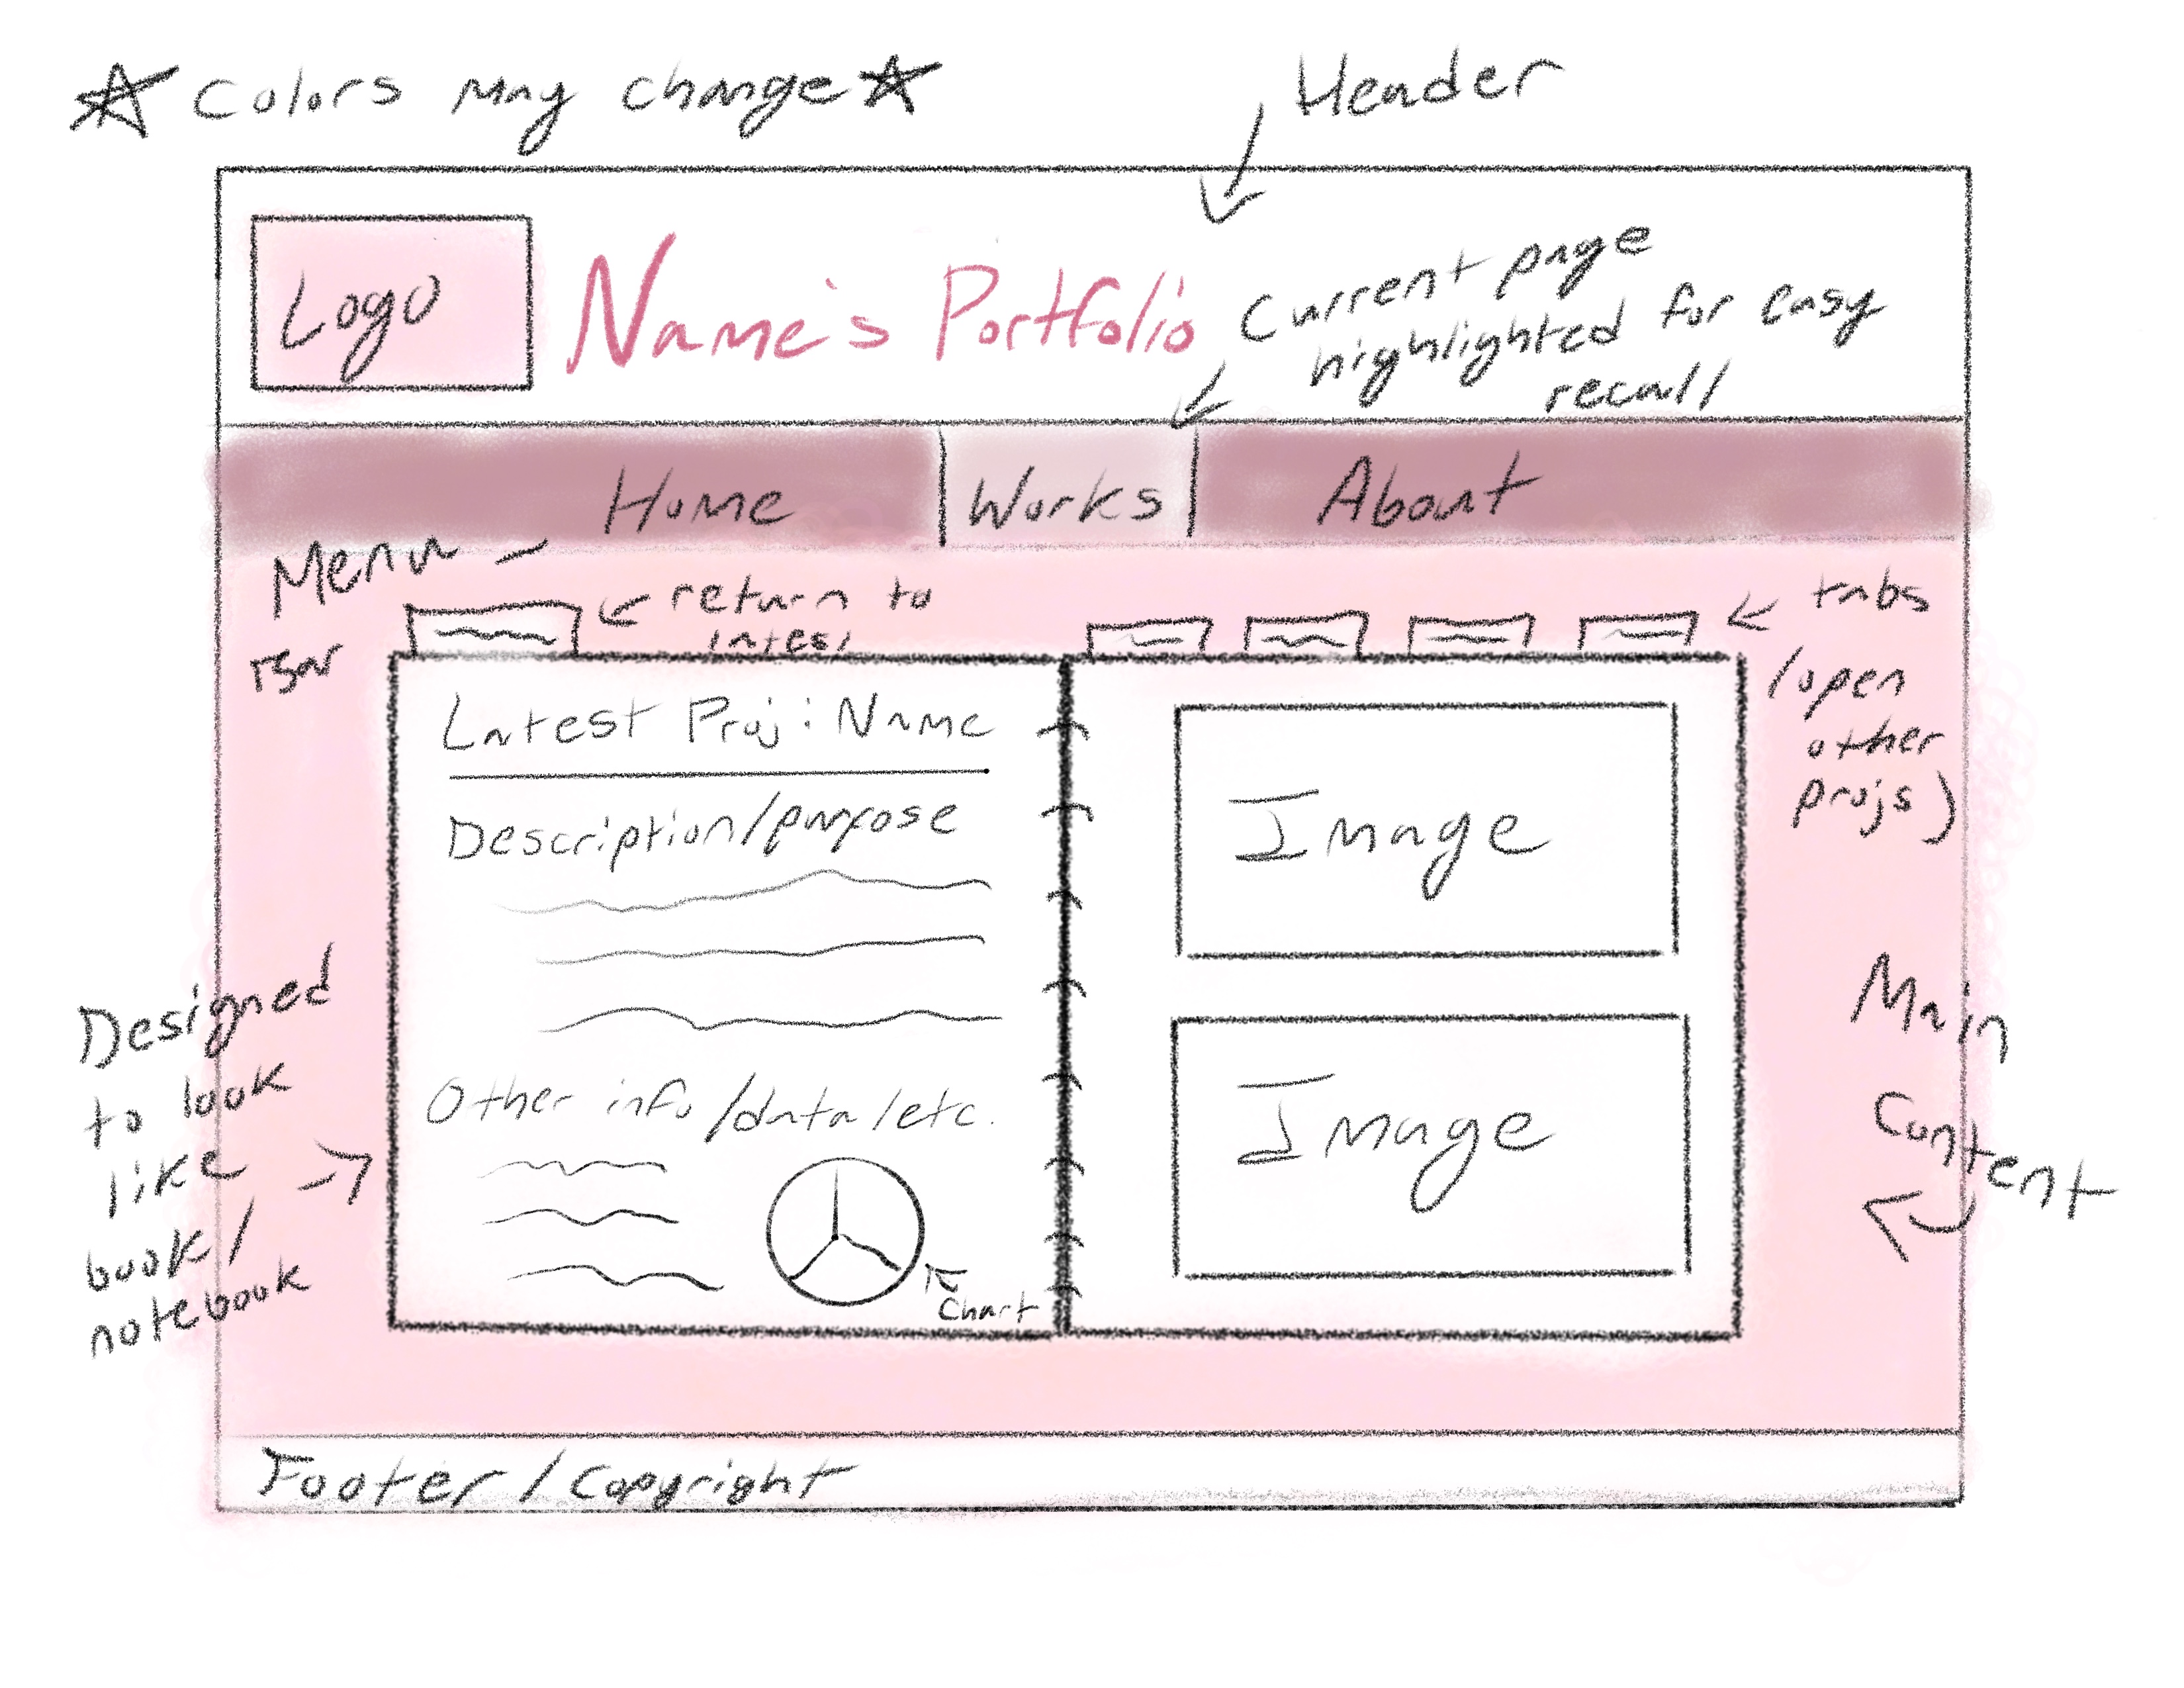 ☆ Colors may change ☆
Header
Logo
Name's Portfolio
Current page
highlighted for easy
recall
Home
Works
About
Menu
Bar
return to
tabs
(open
other
projs)
Latest Proj: Name
Description/purpose
Other info/data/etc.
Chart
Image
Image
Designed
to look
like
book/
notebook
Main
Content
Footer / Copyright